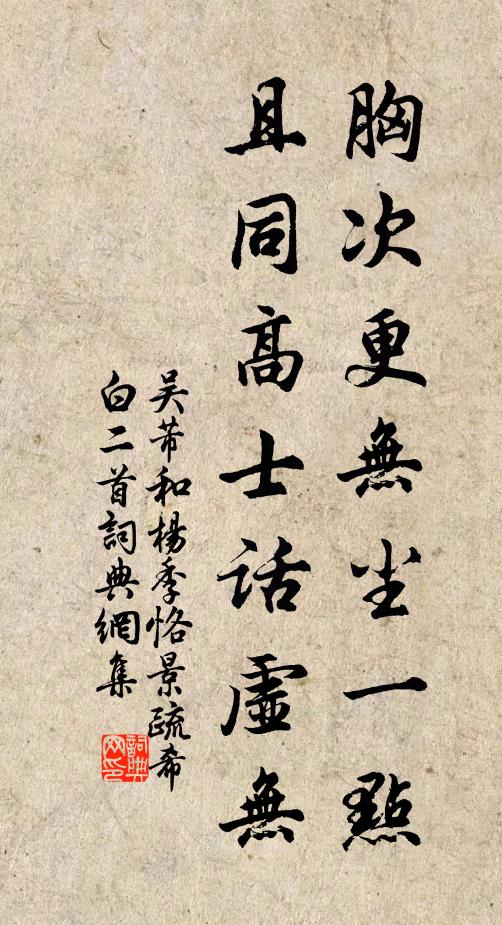 胸次更無尘一點
且同高士話虛無
吴芾和楊季恪景疏希
白二首詞典網集
詞典
网印